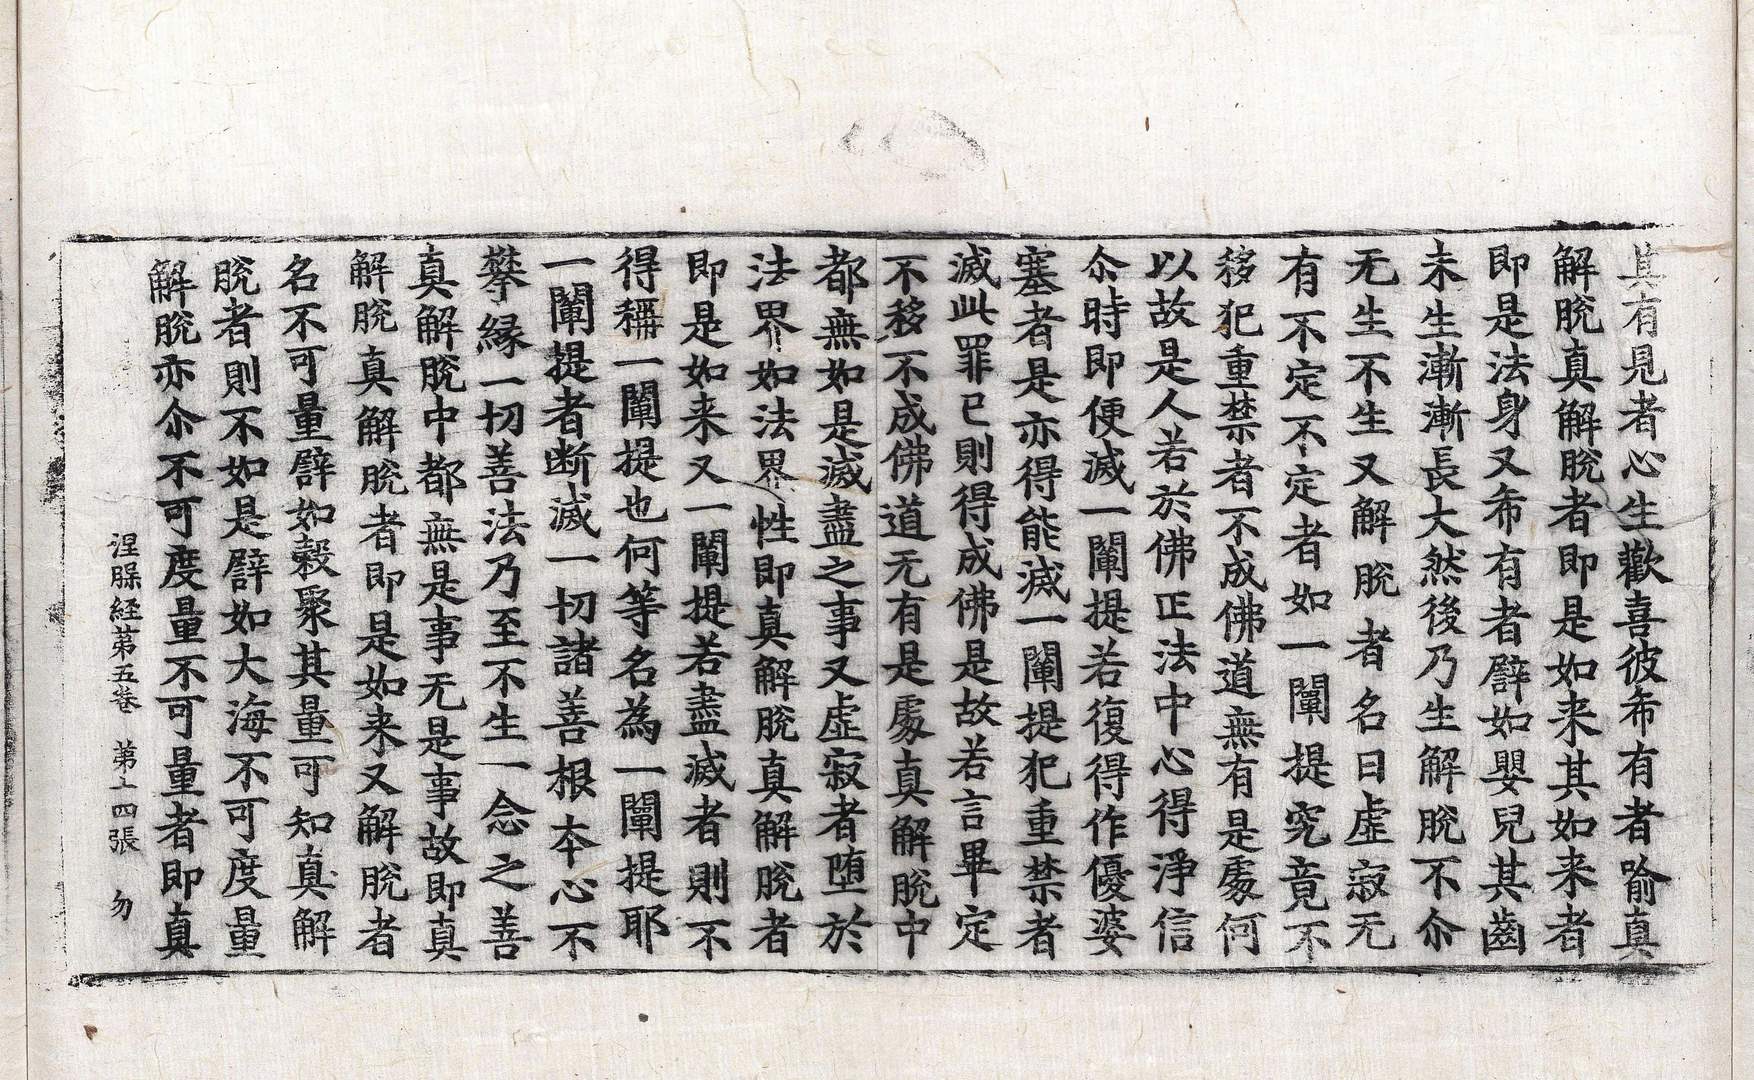 其有見者心生歡喜彼希有者喻真
解脫真解脫者即是如来其如来者
即是法身又希有者譬如嬰兒其齒
未生漸漸長大然後乃生解脫不尒
无生不生又解脫者名曰虛寂无
有不定不定者如一闡提究竟不
移犯重禁者不成佛道無有是處何
以故是人若於佛正法中心得淨信
尒時即便滅一闡提若復得作優婆
塞者是亦得能滅一闡提犯重禁者
滅此罪已則得成佛是故若言畢定
不移不成佛道无有是處真解脫中
都無如是滅盡之事又虛寂者堕於
法界如法界性即真解脫真解脫者
即是如来又一闡提若盡滅者則不
得稱一闡提也何等名為一闡提耶
一闡提者断滅一切諸善根本心不
攀縁一切善法乃至不生一念之善
真解脫中都無是事无是事故即真
解脫真解脫者即是如来又解脫者
名不可量譬如穀聚其量可知真解
脫者則不如是譬如大海不可度量
解脫亦尒不可度量不可量者即真
涅槃経第五巻 第十四張 勿